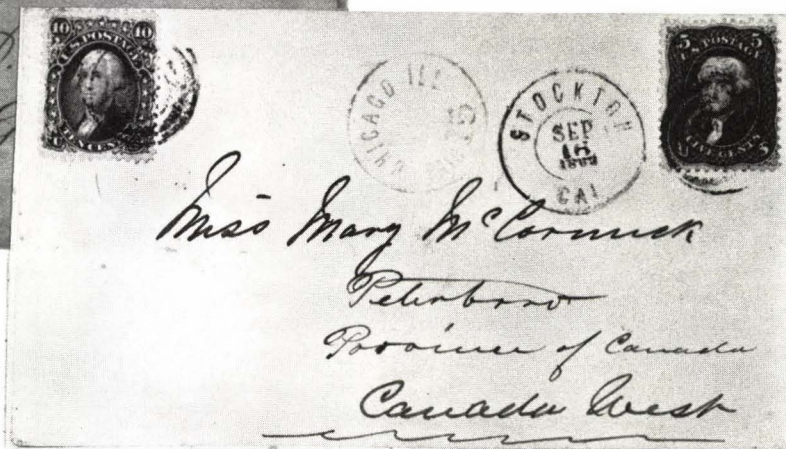 10 10
U.S. POSTAGE
TEN CENTS
CHICAGO ILL
STOCKTON
SEP
16
CAL
5 5
U.S. POSTAGE
FIVE CENTS
5
Miss Mary McCormick
Peterboro
Province of Canada
Canada West